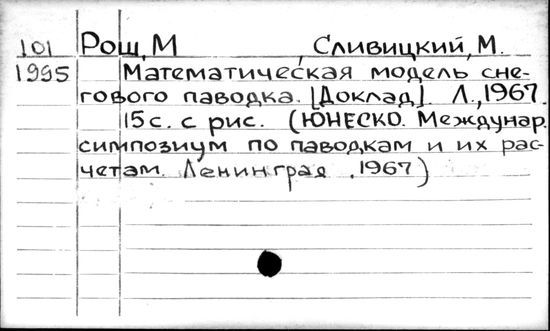 101 Рош, М , Сливицкий, М.
1995 Математическая модель сне-
гового паводка. [Доклад]. Л., 1967.
15 с. с рис. (ЮНЕСКО. Междунар.
симпозиум по паводкам и их рас-
четам. Ленинград , 1967)